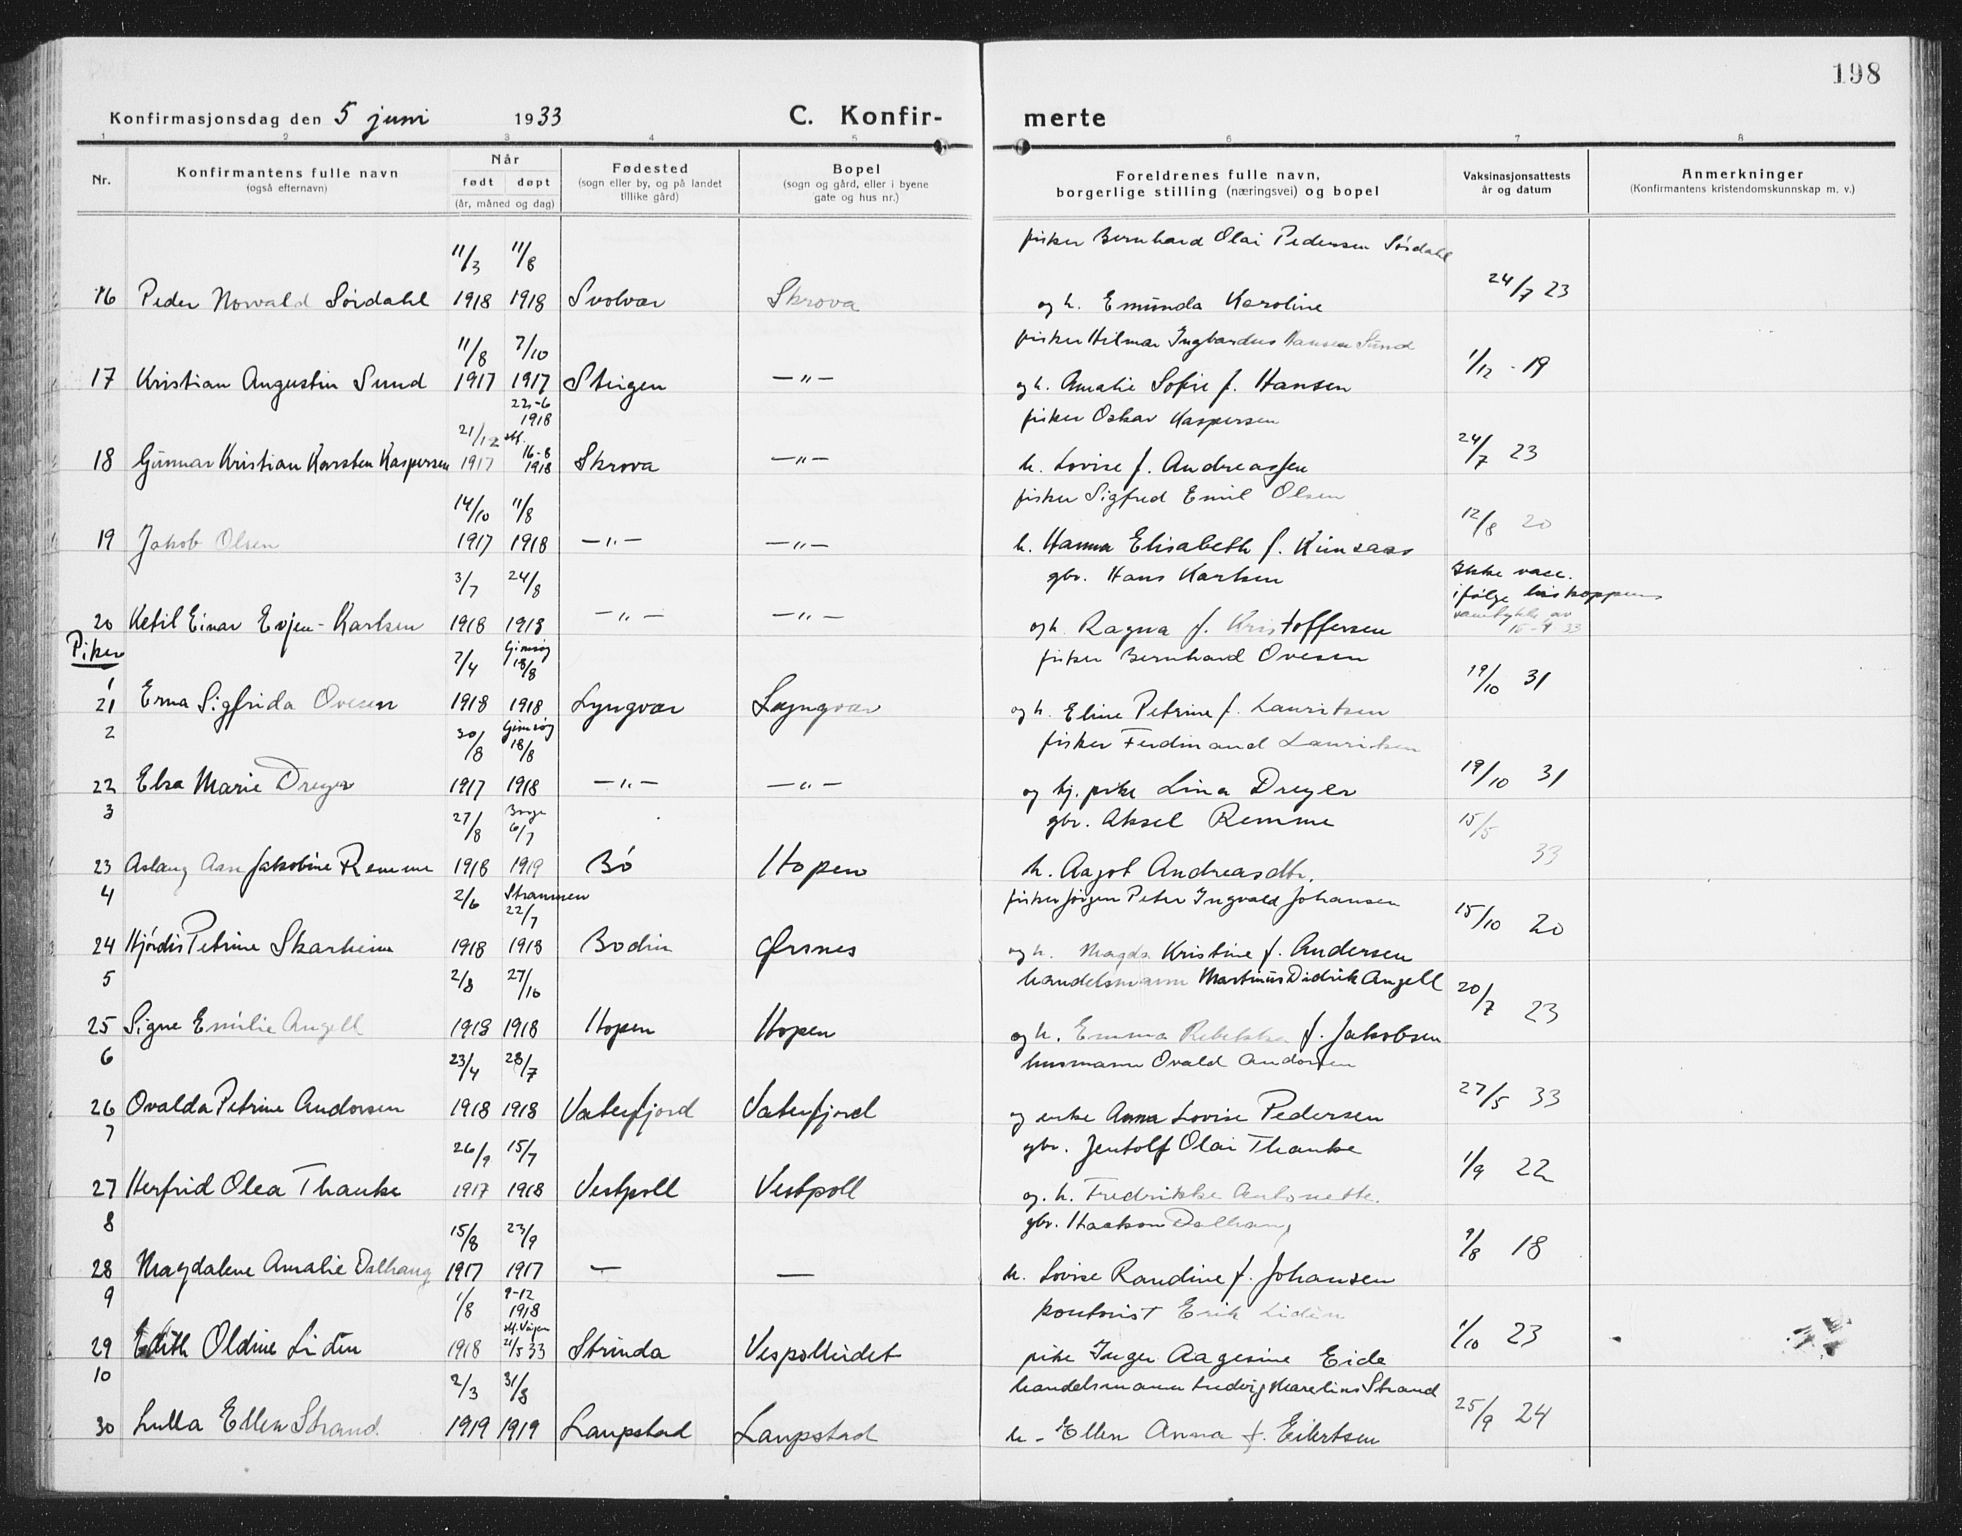 198
Konfirmasjonsdag den 5 juni 1933 C. Konfir- merte
1 2 3 4 5 6 7 8
Nr. Konfirmantens fulle navn (også efternavn) Når født døpt (år, måned og dag) Fødested (sogn eller by, og på landet tillike gård) Bopel (sogn og gård, eller i byene gate og hus nr.) Foreldrenes fulle navn, borgerlige stilling (næringsvei) og bopel Vaksinasjonsattests år og datum Anmerkninger (Konfirmantens kristendomskunnskap m. v.)
11/3 11/8 fisker Bernhard Olai Pedersen Sørdahl
16 Peder Norvald Sørdahl 1918 1918 Svolvær Skrova og h. Emunda Karoline 24/7 23
11/8 7/10 fisker Hilmar Ingvardus Hansen Sund
17 Kristian Angustin Sund 1917 1917 Steigen —"— og h. Amalie Sofie f. Hansen 1/12 - 19
22-6 1918 fisker Oskar Kaspersen
21/12 16-8
18 Gunnar Kristian Karsten Kaspersen 1917 1918 Skrova —"— h. Lovise f. Andreassen 24/7 23
14/10 11/8 fisker Sigfred Emil Olsen
19 Jakob Olsen 1917 1918 —"— —"— h. Hanna Elisabeth f. 12/8 20
3/7 24/8 gbr. Hans Karlsen Ikke vacc.
20 Ketil Einar Evjen-Karlsen 1918 1918 —"— —"— og h. Ragna f. Kristoffersen ifølge
Piker
7/4 Gimsøy 18/8 fisker Bernhard Ovesen
1
21 Erna Sigfrida Ovesen 1918 1918 Lyngvær Lyngvær og h. Eline Petrine f. Lauritsen 19/10 31
2 30/8 Gimsøy 18/8 fisker Ferdinand Lauritsen
22 Elsa Marie Dreyer 1917 1918 —"— —"— og tj. pike Lina Dreyer 19/10 31
3 27/8 Borge 6/7 gbr. Aksel Remme
23 Aslaug Jakobine Remme 1918 1919 Bø Hopen h. Aagot Andreasdtr. 15/5 33
4 2/6 22/7 fisker Jørgen Peter Ingvald Johansen
24 Hjørdis Petrine Skarheim 1918 1918 Bodin Ørsnes og h. Magda Kristine f. Andersen 15/10 20
5 2/8 27/10 handelsmann Martinus Didrik Angell
25 Signe Emilie Angell 1918 1918 Hopen Hopen og h. Emma Rebekka f. Jakobsen 20/7 23
6 23/4 28/7 husmann Ovald Andorsen
26 Ovalda Petrine Andorsen 1918 1918 Vaterfjord Vaterfjord og enke Anna Lovise Pedersen 27/5 33
7 26/9 15/7 gbr. Jentolf Olai Thanke
27 Herfrid Olea Thanke 1917 1918 Vestpoll Vestpoll og. h. Fredrikke Antonette. 1/9 22
8 15/8 23/9 gbr. Haakon Dalhaug
28 Magdalene Amalie Dalhaug 1917 1917 — — h. Lovise Randine f. Johansen 9/8 18
9 1/8 9-12 1918 kontorist Erik Lidén
29 Edith Oldine Lidén 1918 21/5 33 Strinda Vespolleidet pike Inger Aagesine Eide 1/10 23
10 2/3 31/8 handelsmann Ludvig Marelius Strand
30 Lulla Ellen Strand 1919 1919 Laupstad Laupstad h - Ellen Anna f. Eilertsen 25/9 24